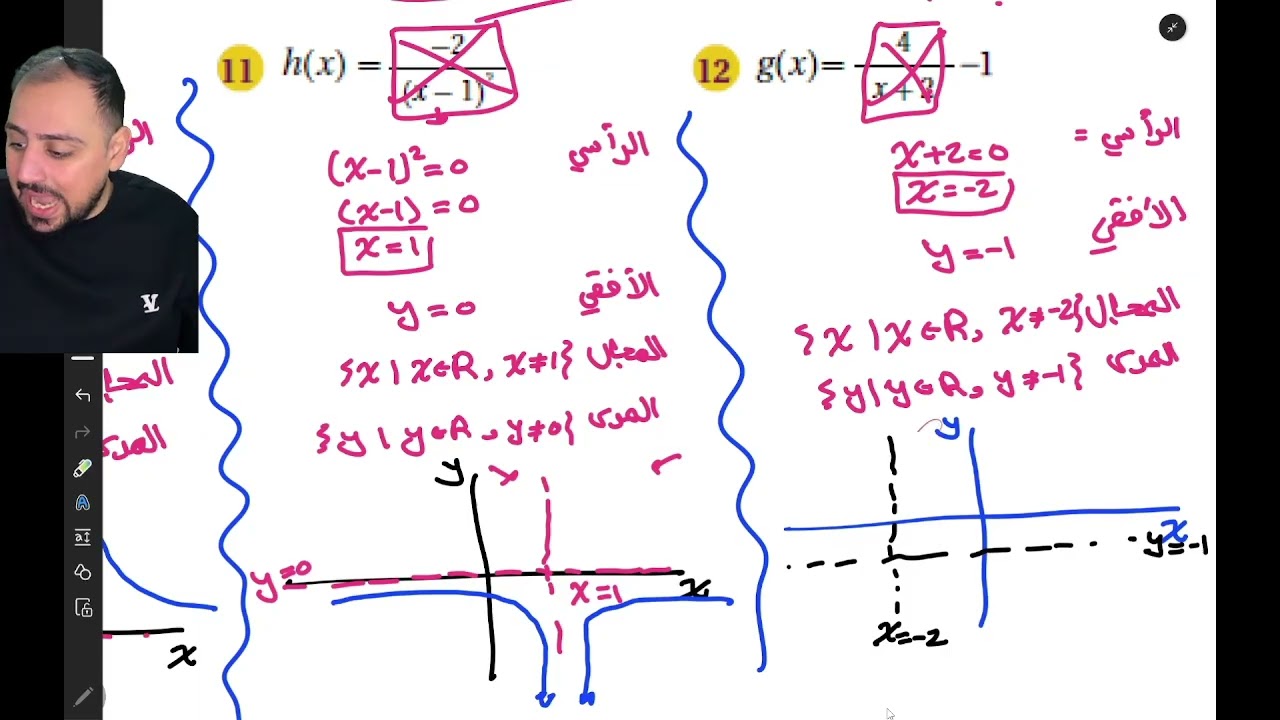 11 h(x) = -2/(x - 1)²
الرأسي
(x-1)² = 0
(x-1) = 0
x = 1
الأفقي
y = 0
المجال {x | x∈R, x≠1}
المدى {y | y∈R, y≠0}
y
y=0
x=1
x
12 g(x)= 4/(x + 2) -1
الرأسي =
x+2=0
x=-2
الأفقي
y=-1
المجال {x | x∈R, x≠-2}
المدى {y | y∈R, y≠-1}
y
x
y=-1
x=-2
المجال
المدى
x